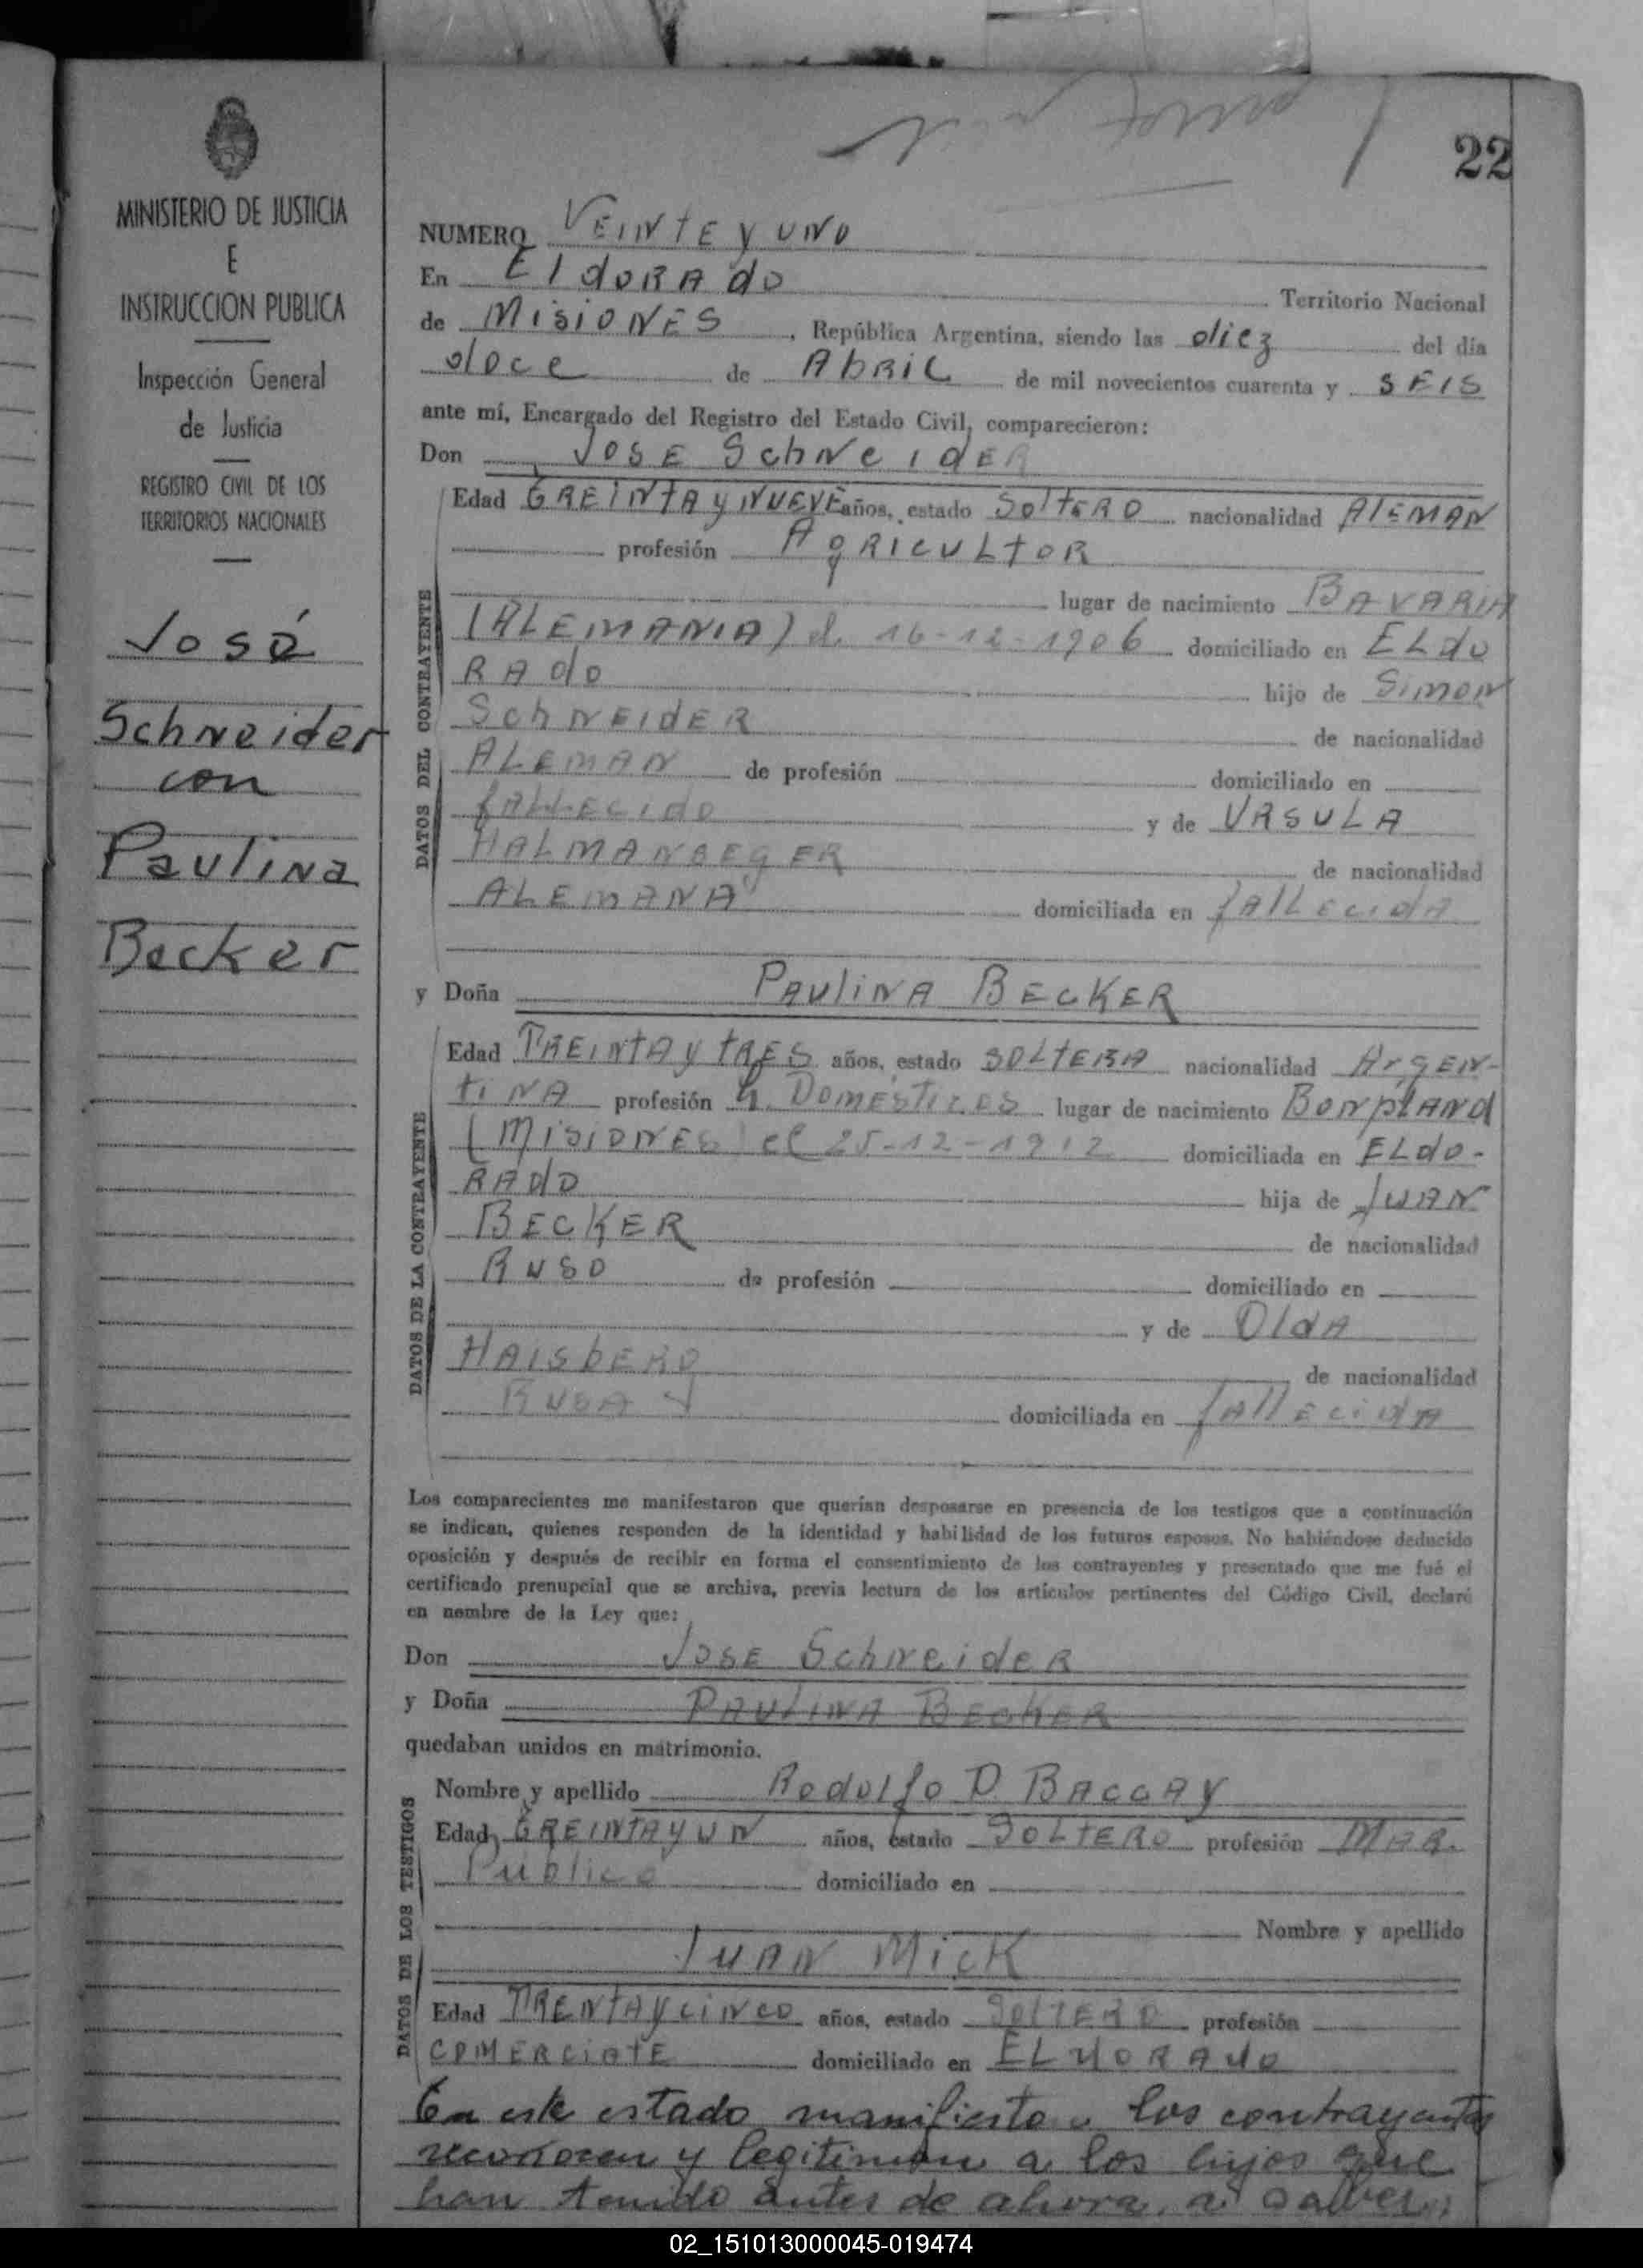 22
MINISTERIO DE JUSTICIA
E
INSTRUCCION PUBLICA
Inspección General
de Justicia
REGISTRO CIVIL DE LOS
TERRITORIOS NACIONALES
José
Schneider
con
Paulina
Becker
NUMERO VEINTE y UNO
En ElDORADO Territorio Nacional
de MISIONES, República Argentina, siendo las diez del día
doce de ABRIL de mil novecientos cuarenta y SEIS
ante mí, Encargado del Registro del Estado Civil, comparecieron:
Don JOSE SchNeIdER
Edad GREINTA y NUEVE años, estado SOLTERO nacionalidad AlEMAN
profesión AgRICULTOR
lugar de nacimiento BAVARIA
(ALEMANIA) el 16-12-1906 domiciliado en ELdO
RAdO hijo de SIMON
SchNEIdER de nacionalidad
ALEMAN de profesión domiciliado en
fALLECIdO y de URSULA
HALMANSEgER de nacionalidad
ALEMANA domiciliada en fAllECIdA
y Doña PAULINA BECKER
Edad TREINTA y TRES años, estado SOLTERA nacionalidad ArgEN-
tINA profesión Q. DOMÉSTICOS lugar de nacimiento BONplANd
(MISIONES) el 25-12-1912 domiciliada en ELdO-
RAdO hija de JUAN
BECKER de nacionalidad
RUSO de profesión domiciliado en
y de OldA
de nacionalidad
RUSA domiciliada en fAllECIdA
Los comparecientes me manifestaron que querían desposarse en presencia de los testigos que a continuación
se indican, quienes responden de la identidad y habilidad de los futuros esposos. No habiéndose deducido
oposición y después de recibir en forma el consentimiento de los contrayentes y presentado que me fué el
certificado prenupcial que se archiva, previa lectura de los artículos pertinentes del Código Civil, declaré
en nombre de la Ley que:
Don JOSE SchNeideR
y Doña PAULINA BECKER
quedaban unidos en matrimonio.
Nombre y apellido Rodolfo D. BACCAY
Edad GREINTA y UN años, estado SOLTERO profesión MAR.
Público domiciliado en
Nombre y apellido
JUAN MICK
Edad TRENTA y CINCO años, estado SOLTERO profesión
COMERCIATE domiciliado en ELdORAdO
En este estado manifiesta los contrayentes
reconocen y legitiman a los hijos que
han tenido antes de ahora, a saber:
DATOS DEL CONTRAYENTE
DATOS DE LA CONTRAYENTE
DATOS DE LOS TESTIGOS
02_151013000045-019474